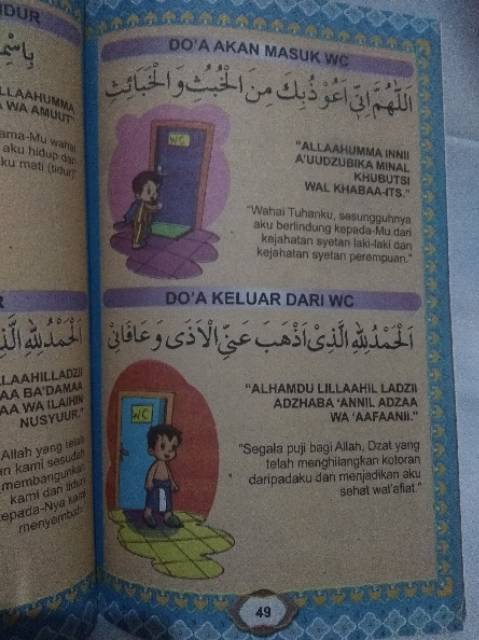 IDUR
بِاسْمِ
LLAAHUMMA
WA AMUUT
ama-Mu
aku hidup dan
ku mati (tidur)"
R
اَلْحَمْدُ لِلّٰهِ الَّذِ
LAAHILLADZII
AA BA'DAMAA
AA WA ILAIHIN
NUSYUUR."
Allah yang telah
kami sesudah
membangunkan
kami dari tidur
epada-Nya kami
menyembah
DO'A AKAN MASUK WC
اَللّٰهُمَّ اِنِّىْ اَعُوْذُبِكَ مِنَ الْخُبُثِ وَالْخَبَائِثِ
WC
"ALLAAHUMMA INNII
A'UUDZUBIKA MINAL
KHUBUTSI
WAL KHABAA-ITS."
"Wahai Tuhanku, sesungguhnya
aku berlindung kepada-Mu dari
kejahatan syetan laki-laki dan
kejahatan syetan perempuan."
DO'A KELUAR DARI WC
اَلْحَمْدُ لِلّٰهِ الَّذِىْ اَذْهَبَ عَنِّى الْاَذَى وَعَافَانِىْ
WC
"ALHAMDU LILLAAHIL LADZII
ADZHABA 'ANNIL ADZAA
WA 'AAFAANII."
"Segala puji bagi Allah, Dzat yang
telah menghilangkan kotoran
daripadaku dan menjadikan aku
sehat wal'afiat."
49